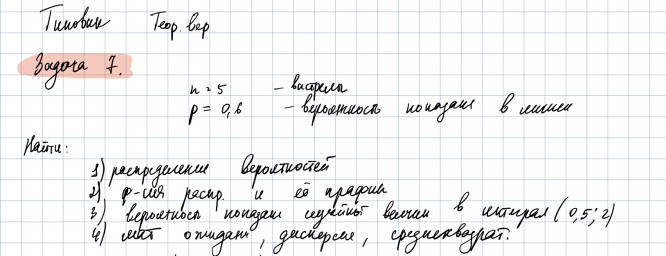 Типовик Теор. вер
Задача 7.
n = 5 – выстрелы
p = 0,6 – вероятность попадания в мишень
Найти:
1) распределение вероятностей
2) ф-ция распр. и её график
3) вероятность попадан случайной величин в интервал (0,5; 2)
4) мат ожидание, дисперсия, среднеквадрат.